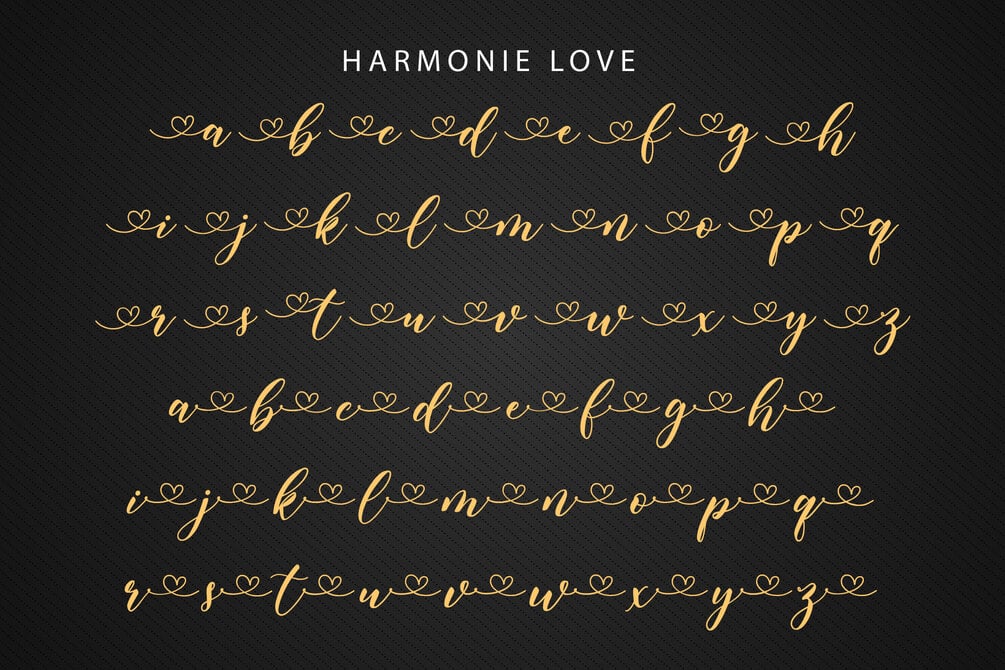 HARMONIE LOVE
a b c d e f g h
i j k l m n o p q
r s t u v w x y z
a b c d e f g h
i j k l m n o p q
r s t u v w x y z